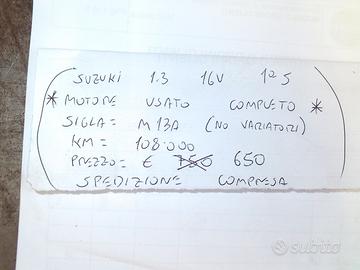 SUZUKI 1.3 16V 125
* MOTORE USATO COMPLETO *
SIGLA = M13A (NO VARIATORI)
KM = 108.000
PREZZO = € 750 650
SPEDIZIONE COMPRESA
subito